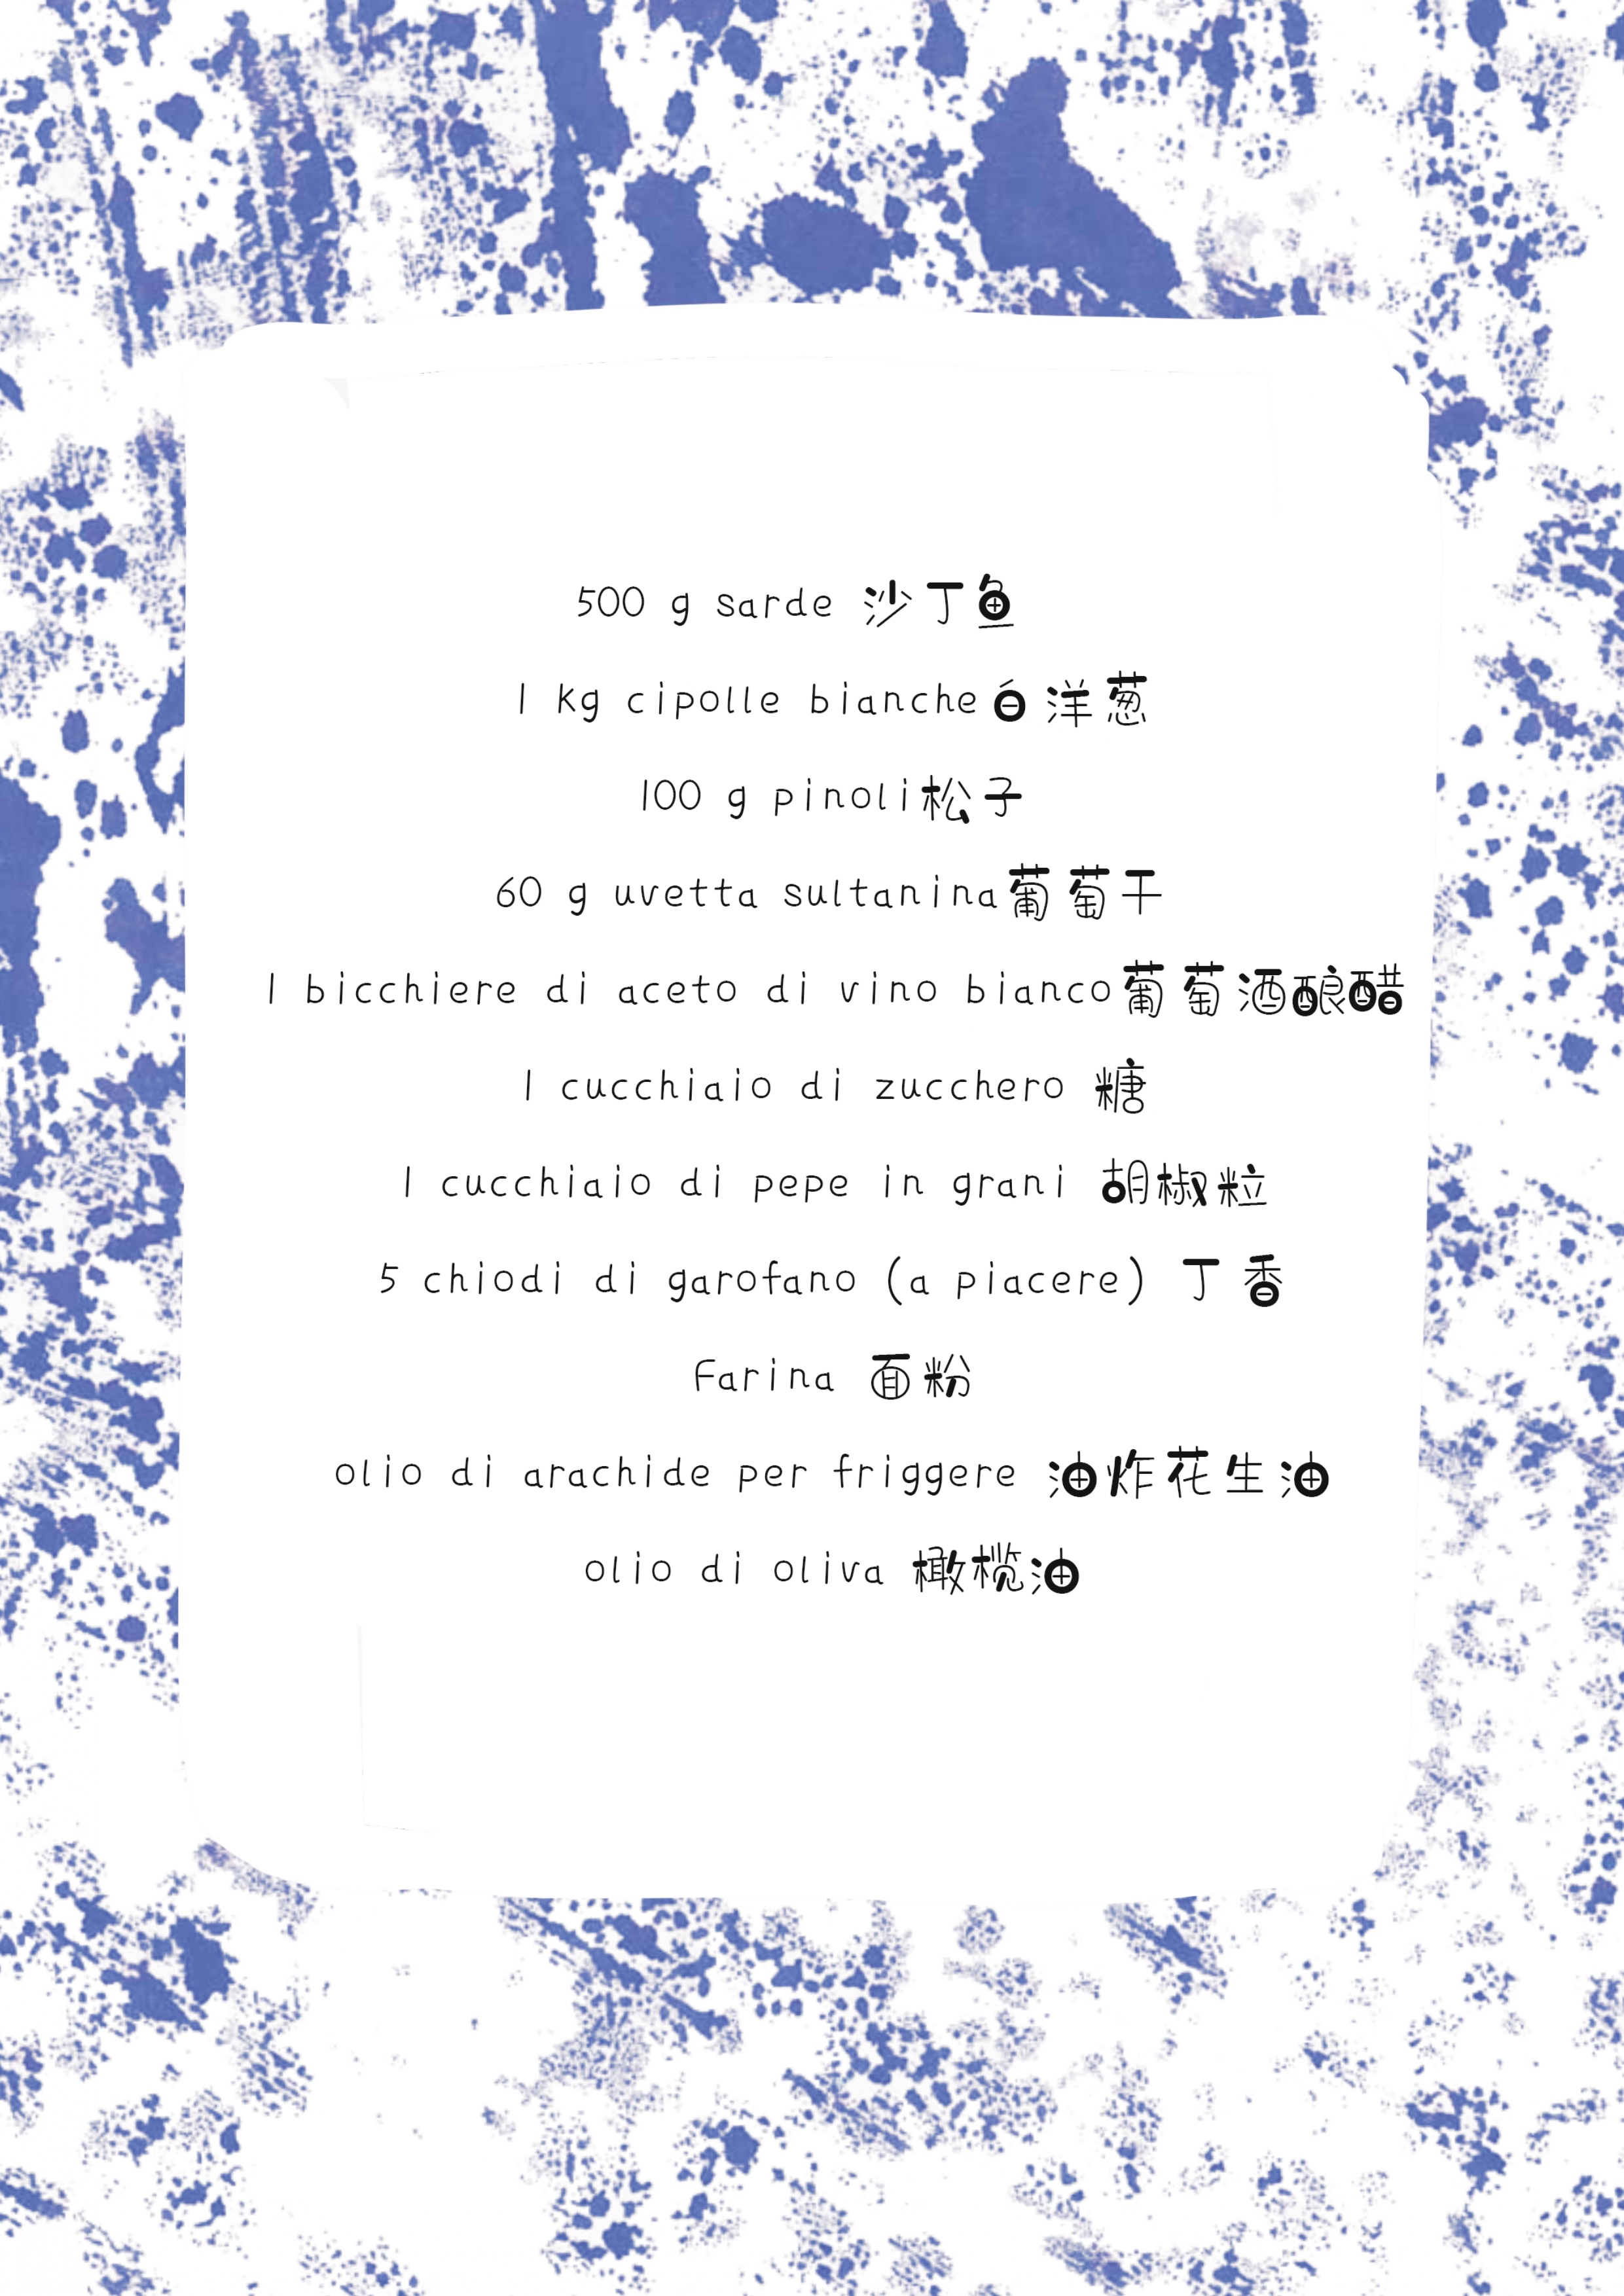 500 g sarde 沙丁鱼
1 kg cipolle bianche 白洋葱
100 g pinoli 松子
60 g uvetta sultanina 葡萄干
1 bicchiere di aceto di vino bianco 葡萄酒酿醋
1 cucchiaio di zucchero 糖
1 cucchiaio di pepe in grani 胡椒粒
5 chiodi di garofano (a piacere) 丁香
Farina 面粉
olio di arachide per friggere 油炸花生油
olio di oliva 橄榄油